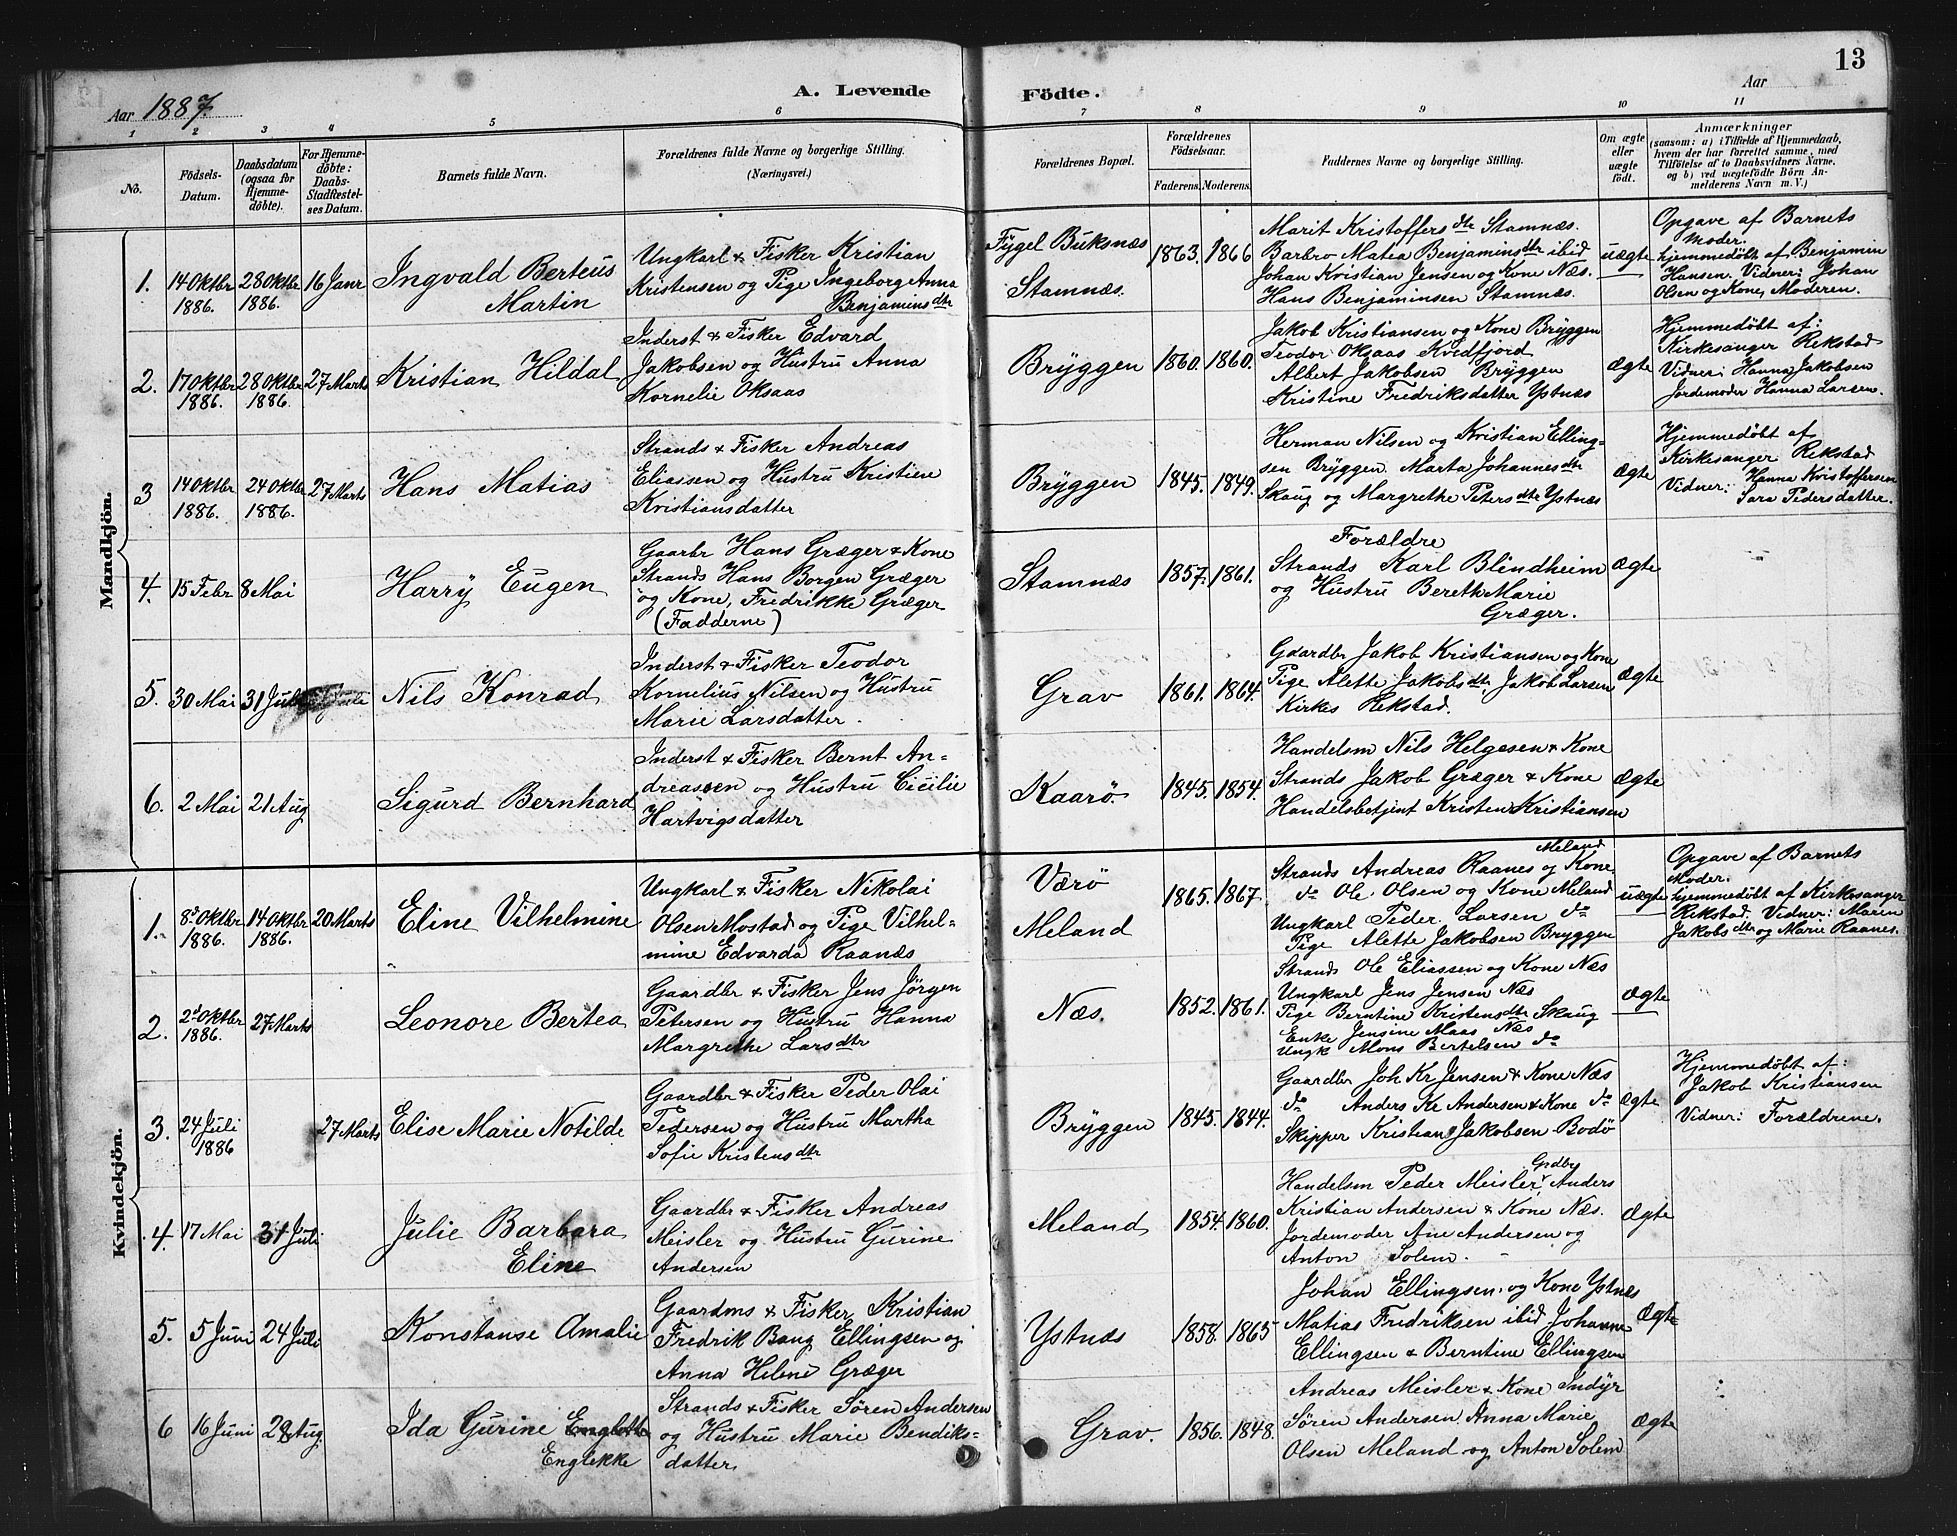 13
Aar 1887.
A. Levende Födte.
Aar
1 2 3 4 5 6 7 8 9 10 11
No.
Födsels-
Datum.
Daabsdatum
(ogsaa for
Hjemme-
döbte).
For Hjemme-
döbte:
Daabs-
Stadfæstel-
ses Datum.
Barnets fulde Navn.
Forældrenes fulde Navne og borgerlige Stilling.
(Næringsvei.)
Forældrenes Bopæl.
Forældrenes
Födselsaar.
Faderens. Moderens.
Faddernes Navne og borgerlige Stilling.
Om ægte
eller
uægte
født.
Anmærkninger
(saasom: a) i Tilfælde af Hjemmedaab,
hvem der har forrettet samme, med
Tilføielse af to Daabsvidners Navne,
og b) ved uægtefødte Börn An-
melderens Navn m. V.)
Mandkjön.
1.
14 Oktbr
1886.
28 Oktbr
1886.
16 Janr
Ingvald Berteus
Martin
Ungkarl & Fisker Kristian
Kristensen og Pige Ingeborg Anna
Benjamins dtr
Fygel Buksnæs
Stamnæs.
1863. 1866
Marit Kristoffers dtr Stamnæs.
Barbro Matea Benjamins dtr ibid
Johan Kristian Jensen og Kone Næs.
Hans Benjaminsen Stamnæs.
uægte
Opgave af Barnets
Moder.
Hjemmedøbt af Benjamin
Hansen. Vidner: Johan
Olsen og Kone, Moderen.
2.
17 Oktbr
1886.
28 Oktbr
1886.
27 Marts
Kristian Hildal
Inderst & Fisker Edvard
Jakobsen og Hustru Anna
Kornelie Oksaas
Bryggen
1860. 1860.
Jakob Kristiansen og Kone Bryggen
Teodor Oksaas Kvedfjord
Albert Jakobsen Bryggen
Kristine Fredriksdatter Ystnæs
ægte
Hjemmedöbt af:
Kirkesanger Rekstad
Vidner: Hanna Jakobsen
Jordemoder Hanna Larsen.
3
14 Oktbr
1886.
24 Oktbr
1886.
27 Marts
Hans Matias
Strands & Fisker Andreas
Eliassen og Hustru Kristine
Kristiansdatter
Bryggen
1845. 1849.
Herman Nilsen og Kristian Elling-
sen Bryggen. Marta Johannes dtr
Skaug og Margrethe Peters dtr Ystnæs
ægte
Hjemmedöbt af
Kirkesanger Rekstad
Vidner: Hanna Kristoffersen
Sara Pedersdatter.
4.
15 Febr
8 Mai
Harry Eugen
Gaarbr Hans Græger & Kone
Strands Hans Borgen Græger
og Kone, Fredrikke Græger
(Fadderne)
Stamnæs
1857. 1861.
Forældre
Strands Karl Blindheim
og Hustru Bereth Marie
Græger.
ægte
5.
30 Mai
31 Juli
Nils Konrad
Inderst & Fisker Teodor
Kornelius Nilsen og Hustru
Marie Larsdatter.
Grav
1861. 1864.
Gaardbr Jakob Kristiansen og Kone
Pige Alette Jakobs dtr Jakob Larsen
Kirkes Rekstad.
ægte
6.
2 Mai
21 Aug
Sigurd Bernhard
Inderst & Fisker Bernt An-
dreassen og Hustru Cicilie
Hartvigsdatter
Kaarö.
1845. 1854.
Handelsm Nils Helgesen & Kone
Strands Jakob Græger & Kone
Handelsbetjent Kristen Kristiansen
ægte
Kvindekjön.
1.
8d Oktbr
1886.
14 Oktbr
1886.
20 Marts
Eline Vilhelmine
Ungkarl & Fisker Nikolai
Olsen Mostad og Pige Vilhel-
mine Edvarda Raanæs
Værö
Meland
1865. 1867.
Meland
Strands Andreas Raanes og Kone
do Ole Olsen og Kone Meland
Ungkarl Peder Larsen do
Pige Alette Jakobsen Bryggen
uægte
Opgave af Barnets
Moder.
Hjemmedøbt af Kirkesanger
Rekstad. Vidner: Maren
Jakobs dtr og Marie Raanes.
2.
2d Oktbr
1886.
27 Marts
Leonore Bertea
Gaardbr & Fisker Jens Jörgen
Petersen og Hustru Hanna
Margrethe Lars dtr
Næs.
1852. 1861.
Strands Ole Eliassen og Kone Næs
Ungkarl Jens Jensen Næs
Pige Berntine Kristens dtr Skaug
Enke Jensine Maas Næs
Ungk Mons Bertelsen do
ægte
3.
24 Juli
1886
27 Marts
Elise Marie Notilde
Gaardbr & Fisker Peder Olai
Pedersen og Hustru Martha
Sofie Kristens dtr
Bryggen
1845. 1844.
Gaardbr Joh Kr Jensen & Kone Næs
do Anders Kr Andersen & Kone do
Skipper Kristian Jakobsen Bodö
ægte
Hjemmedöbt af:
Jakob Kristiansen
Vidner: Forældrene.
4.
17 Mai
31 Juli
Julie Barbara
Eline
Gaardbr & Fisker Andreas
Meisler og Hustru Gurine
Andersen
Meland
1854. 1860.
Grdbr
Handelsm Peder Meisler, Anders
Kristian Andersen & Kone Næs.
Jordemoder Ane Andersen og
Anton Solem.
ægte
5.
5 Juni
24 Juli
Konstanse Amalie
Gaardms & Fisker Kristian
Fredrik Bang Ellingsen og
Anna Helene Græger
Ystnæs
1858. 1865
Johan Ellingsen og Kone Ystnæs
Matias Fredriksen ibid Johanne
Ellingsen & Berntine Ellingsen
ægte
6
16 Juni
28 Aug
Ida Gurine
Englekke
Strands & Fisker Sören Andersen
og Hustru Marie Bendiks-
datter.
Grav.
1856. 1848.
Andreas Meisler & Kone Indyr
Sören Andersen, Anna Marie
Olsen Meland og Anton Solem
ægte